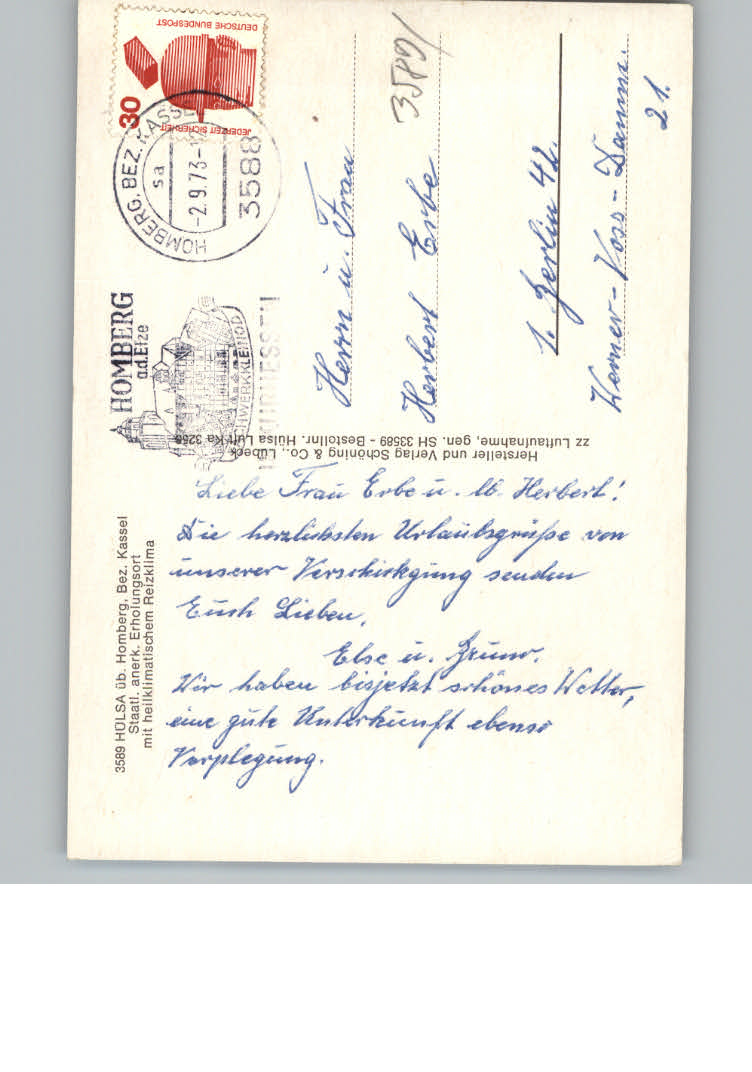 3589 HÜLSA üb. Homberg, Bez. Kassel
Staatl. anerk. Erholungsort
mit heilklimatischem Reizklima
Liebe Frau Erbe u. lb. Herbert!
Die herzlichsten Urlaubsgrüße von
unserer Verschickgung senden
Euch Lieben,
Else u. Bruno.
Wir haben bisjetzt schönes Wetter,
eine gute Unterkunft ebenso
Verplegung.
Hersteller und Verlag Schöning & Co., Lübeck
zz Luftaufnahme, gen. SH 33589 - Bestellnr. Hülsa Luft Ka 3258
HOMBERG
a.d. Efze
FACHWERKKLEINOD
IN KURHESSEN
HOMBERG, BEZ. KASSEL
sa
-2.9.73-
3588
DEUTSCHE BUNDESPOST
JEDERZEIT SICHERHEIT
30
3589/
Herrn u. Frau
Herbert Erbe
1. Berlin 42.
Werner-Voss-Damm.
21.